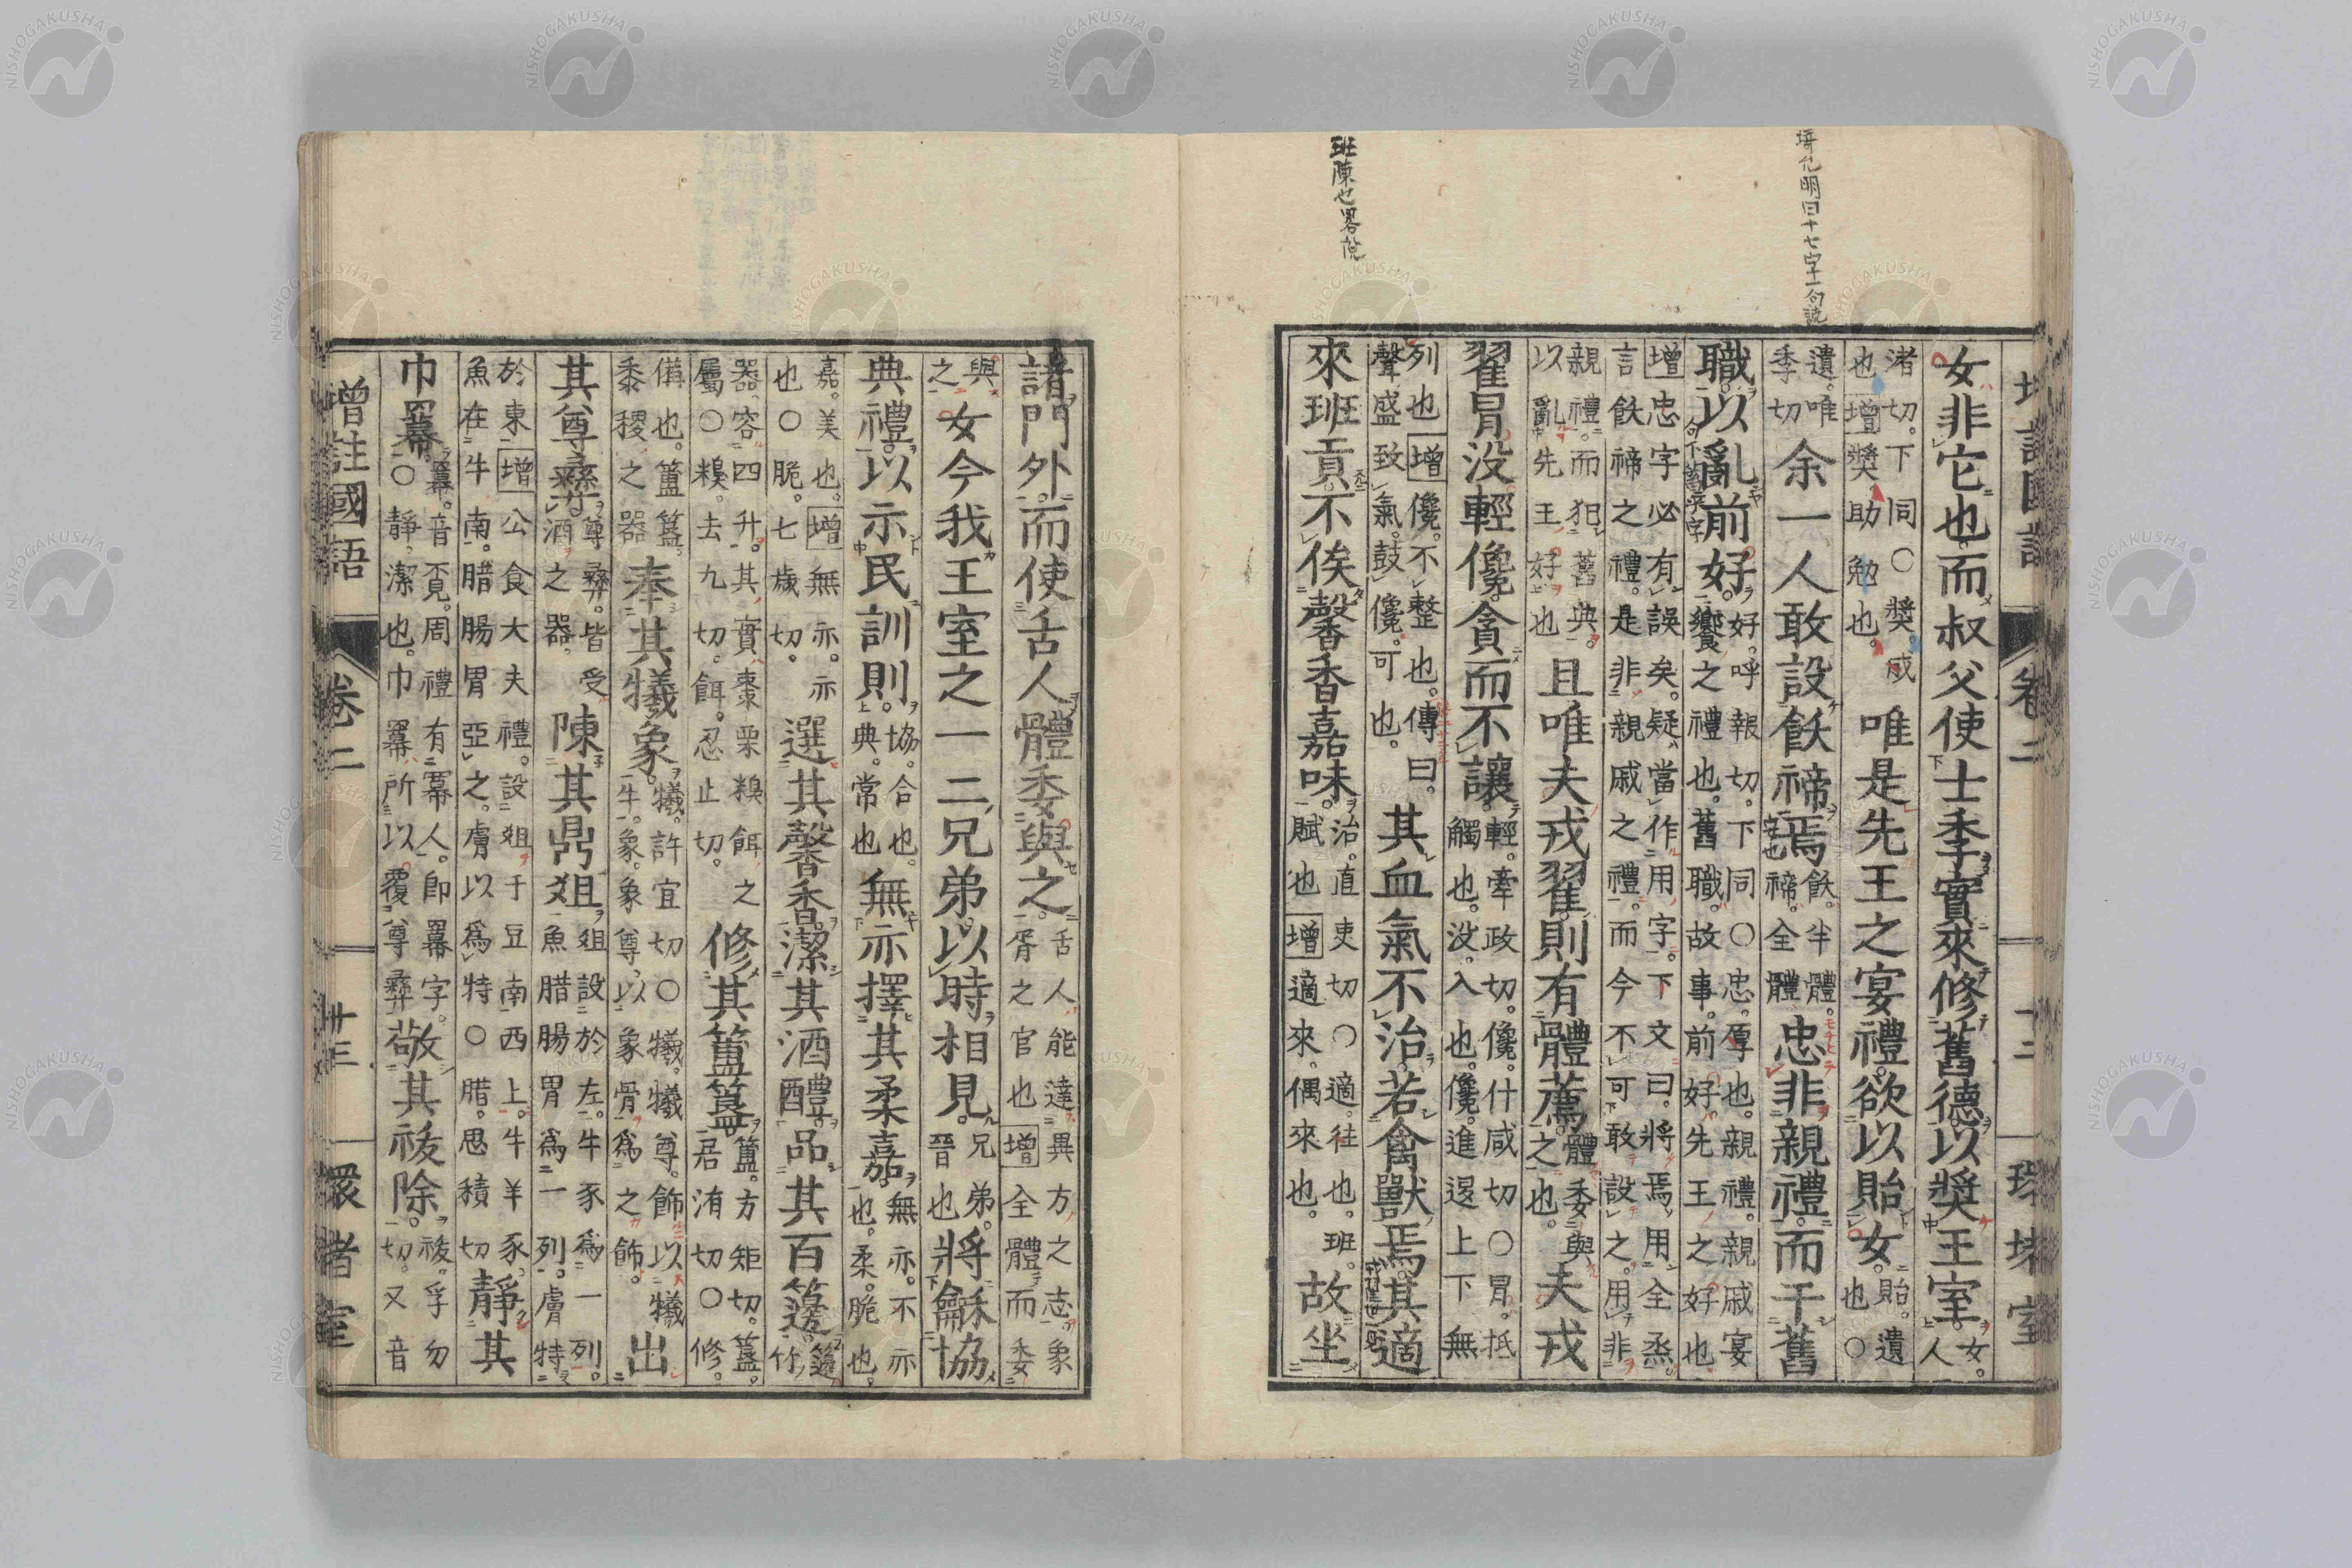 堉允明曰十七字一句読
班陳也畧說
卷二
女非它也而叔父使士季實來修舊德以獎王室女。
人
渚切。下同〇獎。成
也增獎。助勉也。
唯是先王之宴禮欲以貽女貽。遺
也〇
遺。唯
季切
余一人敢設飫禘焉飫。半體。
禘。全體
忠非親禮而干舊
職以亂前好好。呼報切。下同〇忠。厚也。親禮。親戚宴
饗之禮也。舊職。故事。前好。先王之好也
增忠字必有誤矣。疑當作用字。下文曰。將焉用全烝。
言飫禘之禮。是非親戚之禮。而今不可敢設之。用非
親禮。而犯舊典。
以亂先王好也
且唯夫戎翟則有體薦體委與
之也。
夫戎
翟冒没輕儳貪而不讓輕。牽政切。儳。什咸切〇冒。抵
觸也。没。入也。儳。進退上下無
列也增儳。不整也。傳曰。
聲盛致氣。鼓儳。可也。
其血氣不治若禽獸焉其適
來班貢不俟馨香嘉味治。直吏切〇適。往也。班。
賦也增適來。偶來也。
故坐
諸門外而使舌人體委與之舌人。能達異方之志。象
胥之官也增全體而委
與
之
女今我王室之一二兄弟以時相見兄弟。
晉也
將龢協
典禮以示民訓則協。合也。
典。常也
無亦擇其柔嘉無亦。不亦
也。柔。脆也。
嘉。美也。增無亦。亦
也〇脆。七歲切。
選其馨香潔其酒醴品其百籩籩。
竹
器。容四升。其實棗栗糗餌之
屬〇糗。去九切。餌。忍止切。
修其簠簋簠。方矩切。簋。
居洧切〇修。
僃也。簠簋。
黍稷之器
奉其犧象犧。許宜切〇犧。犧尊。飾以犧
牛。象。象尊。以象骨爲之飾。
出
其尊彝尊彝。皆受
酒之器。
陳其鼎俎俎設於左。牛豕爲一列。
魚腊腸胃爲一列。膚特
於東增公食大夫禮。設俎于豆南西上。牛羊豕。
魚在牛南。腊腸胃亞之。膚以爲特〇腊。思積切
靜其
巾冪冪。音覓。周禮有冪人。卽冪字。
〇靜。潔也。巾冪所以覆尊彝
敬其祓除祓。孚勿
切。又音
增註國語 卷二 廿三
NISHOGAKUSHA